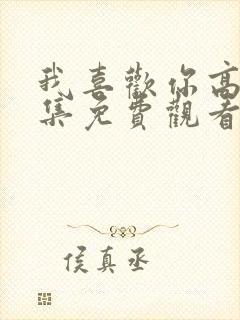 我喜歡你高
集免費觀看
侯真丞